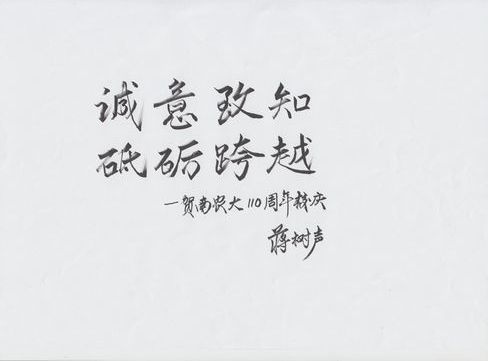 诚意致知
砥砺跨越
一贺南农大110周年校庆
蒋树声